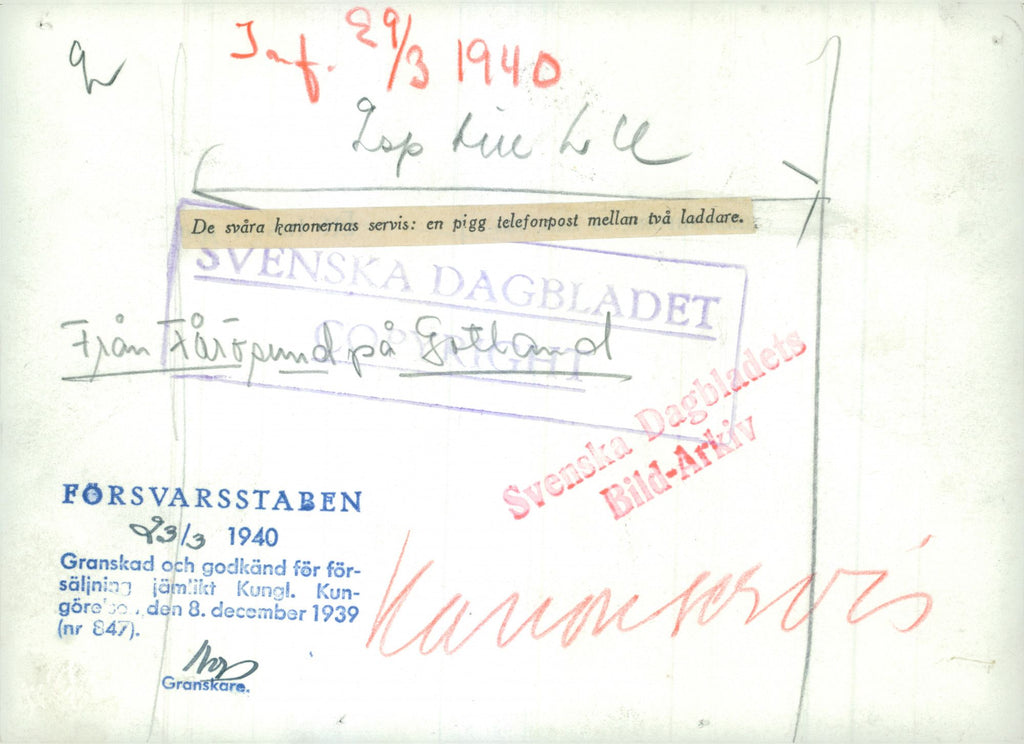 Inf. 29/3 1940
De svåra kanonernas servis: en pigg telefonpost mellan två laddare.
SVENSKA DAGBLADET
COPYRIGHT
Från Fårösund på Gotland
Svenska Dagbladets
Bild-Arkiv
FÖRSVARSSTABEN
23/3 1940
Granskad och godkänd för för-
säljning jämlikt Kungl. Kun-
görelse den 8. december 1939
(nr 847).
Granskare.
Kanonservis